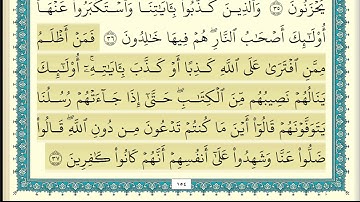 يَحْزَنُونَ ٣٥ وَٱلَّذِينَ كَذَّبُواْ بِـَٔايَٰتِنَا وَٱسْتَكْبَرُواْ عَنْهَآ
أُوْلَٰٓئِكَ أَصْحَٰبُ ٱلنَّارِۖ هُمْ فِيهَا خَٰلِدُونَ ٣٦ فَمَنْ أَظْلَمُ
مِمَّنِ ٱفْتَرَىٰ عَلَى ٱللَّهِ كَذِبًا أَوْ كَذَّبَ بِـَٔايَٰتِهِۦٓۚ أُوْلَٰٓئِكَ
يَنَالُهُمْ نَصِيبُهُم مِّنَ ٱلْكِتَٰبِۖ حَتَّىٰٓ إِذَا جَآءَتْهُمْ رُسُلُنَا
يَتَوَفَّوْنَهُمْ قَالُوٓاْ أَيْنَ مَا كُنتُمْ تَدْعُونَ مِن دُونِ ٱللَّهِۖ قَالُواْ
ضَلُّواْ عَنَّا وَشَهِدُواْ عَلَىٰٓ أَنفُسِهِمْ أَنَّهُمْ كَانُواْ كَٰفِرِينَ ٣٧
١٥٤